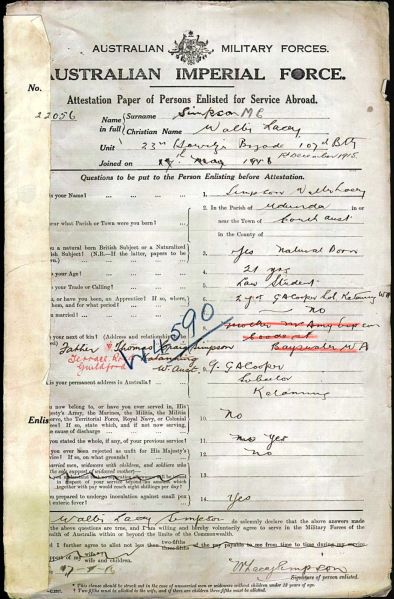 AUSTRALIAN MILITARY FORCES.
AUSTRALIAN IMPERIAL FORCE.
Attestation Paper of Persons Enlisted for Service Abroad.
No.
22056
Name in full
Surname Simpson M C
Christian Name Wallis Lacey
Unit 23rd Brigade 107th Bty
Joined on May 1st December 1915
Questions to be put to the Person Enlisting before Attestation.
is your Name?
1. Simpson
or near what Parish or Town were you born?
2. In the Parish of in or
near the Town of South Aust
in the County of
you a natural born British Subject or a Naturalized
British Subject? (N.B.—If the latter, papers to be
3. Yes Natural Born
is your Age?
4. 21 yrs
is your Trade or Calling?
5. Law Student
you, or have you been, an Apprentice? If so, where,
6. 2 yrs G A Cooper Sol Katanning W A
7. No
8. Mother Mrs Amy Simpson
is your next of kin? (Address and relationship)
Bayswater W A
Father Thomas Simpson
Terrace Road
Guildford
Katanning
W Aust
W14590
is your permanent address in Australia?
9. G A Cooper
Solicitor
Katanning
now belong to, or have you ever served in, His
Majesty's Army, the Marines, the Militia, the Militia
Reserve, the Territorial Force, Royal Navy, or Colonial
Forces? If so, state which, and if not now serving,
10. No
Enlis
you stated the whole, if any, of your previous service?
11. Yes
you ever been rejected as unfit for His Majesty's
If so, on what grounds?
12. No
married men, widowers with children, and soldiers who
the sole support of widowed mother—
in respect of your service beyond an amount which
together with pay would reach eight shillings per day?
13.
you prepared to undergo inoculation against small pox
enteric fever?
14. Yes
Wallis Lacey Simpson do solemnly declare that the above answers made
the above questions are true, and I am willing and hereby voluntarily agree to serve in the Military Forces of the
Commonwealth of Australia within or beyond the limits of the Commonwealth.
And I further agree to allot not less than two-fifths
three-fifths of the pay payable to me from time to time during my service
wife and children.
W Lacey Simpson
Signature of person enlisted.
* This clause should be struck out in the case of unmarried men or widowers without children under 18 years of age.
† Two fifths must be allotted to the wife, and if there are children three-fifths must be allotted.